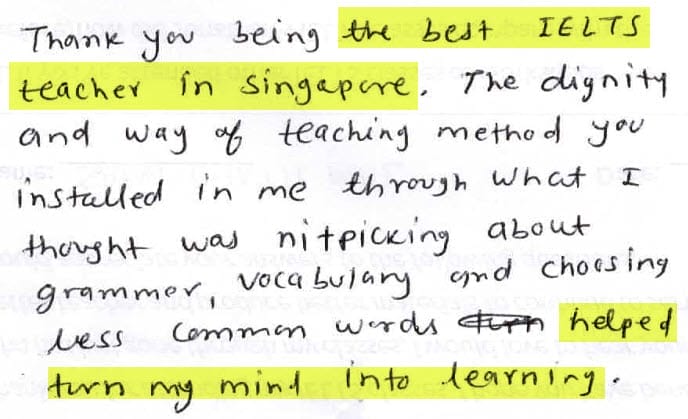 Thank you being the best IELTS
teacher in Singapore. The dignity
and way of teaching method you
installed in me through what I
thought was nitpicking about
grammer, vocabulary and choosing
less common words turn helped
turn my mind into learning.